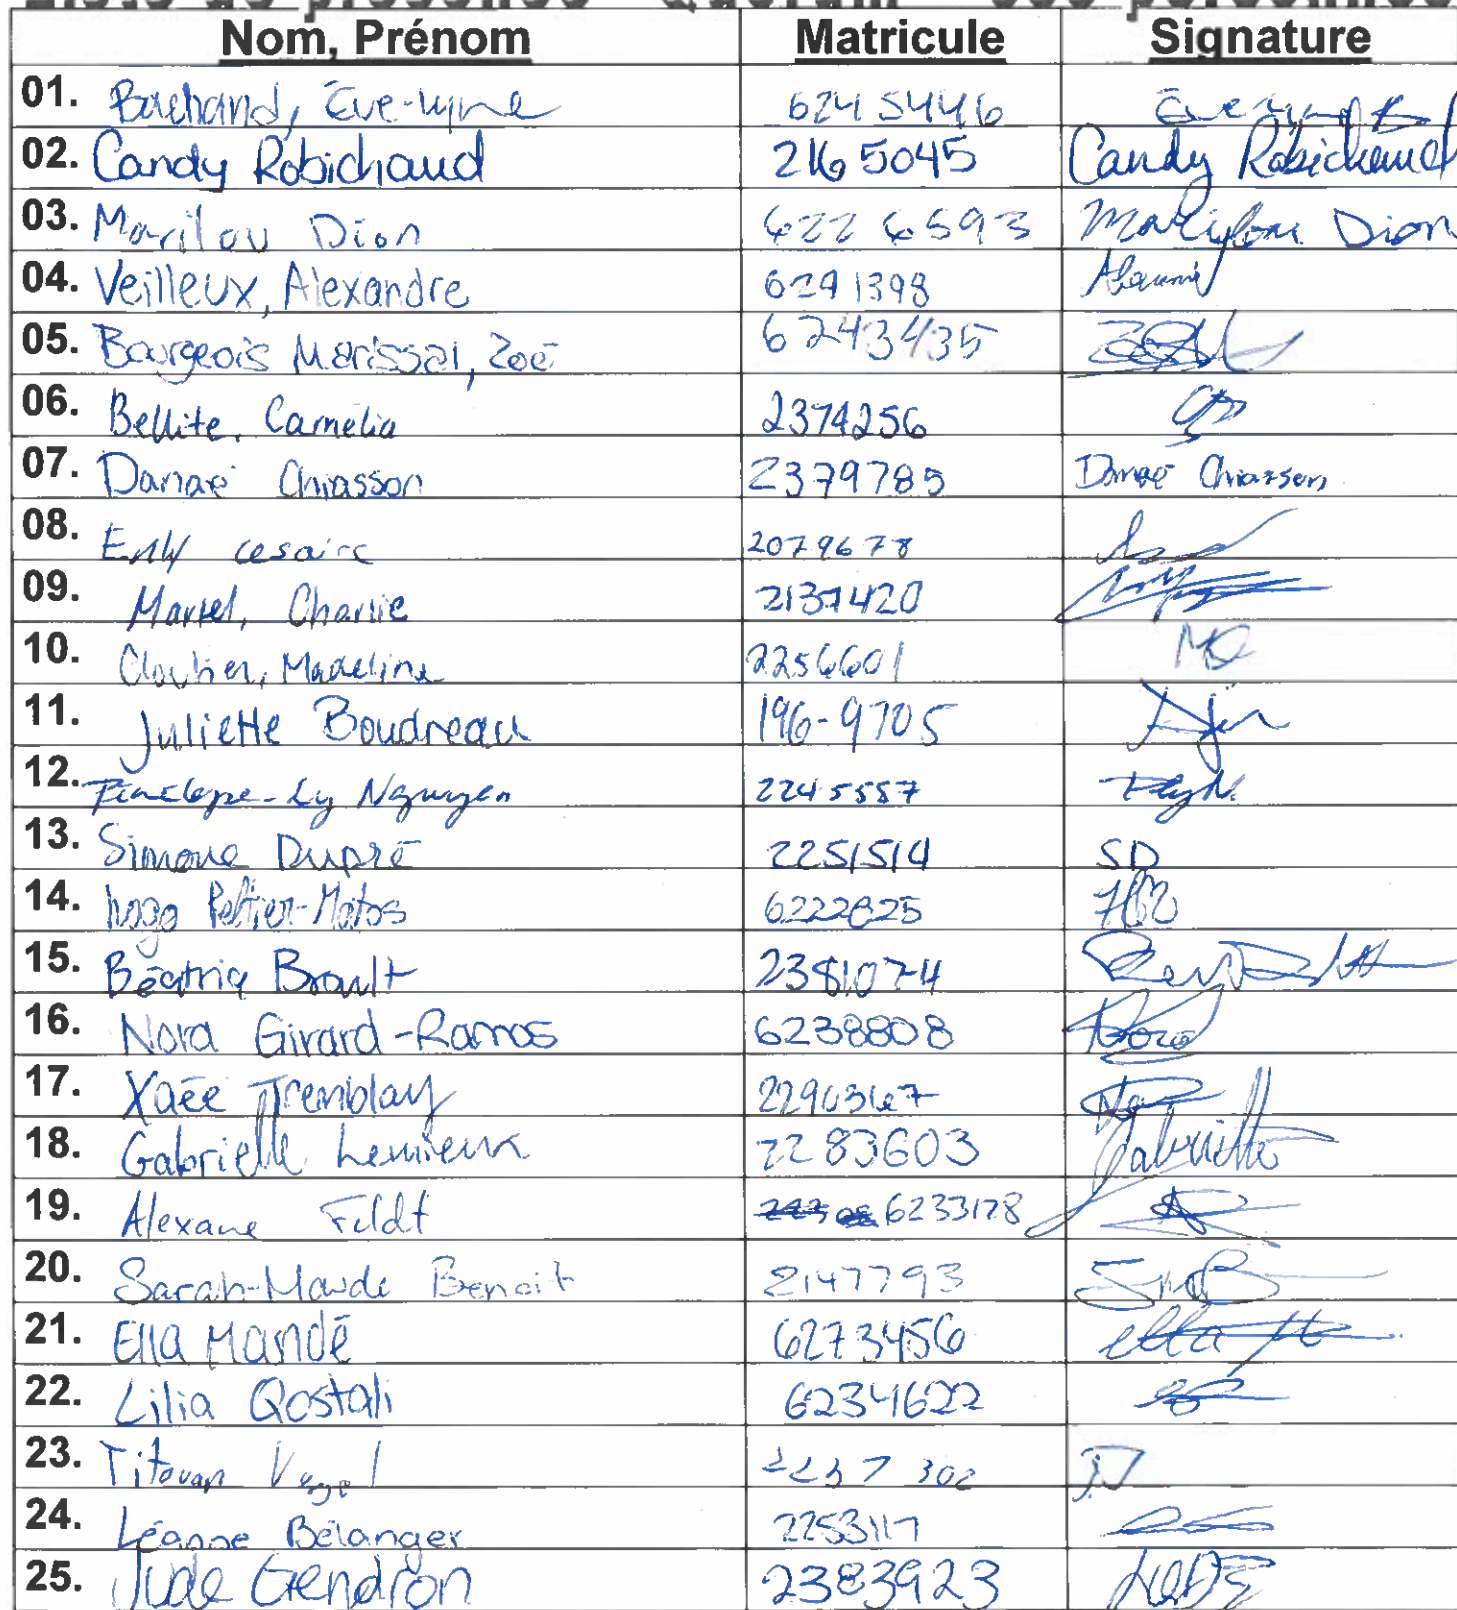 Liste de présence - Quorum - personnes
Nom, Prénom Matricule Signature
01. Bachand, Ève-Lyne 6245446 Ève-Lyne B
02. Candy Robichaud 2165045 Candy Robichaud
03. Marilou Dion 6226593 Marilou Dion
04. Veilleux, Alexandre 6291398
05. Bourgeois Marissal, Zoé 6243435
06. Bellite, Camélia 2374256
07. Danaé Chiasson 2379785 Danaé Chiasson
08. cesaire 2079678
09. Martel, Charlie 2137420
10. Cloutier, Madeline 2256601 MC
11. Juliette Boudreau 196-9705
12. Pénélope-Ly Nguyen 2245557
13. Simone Dupré 2251514 SD
14. Hugo Peltier-Matos 6222825
15. Béatrice Brault 2381074
16. Nora Girard-Ramos 6238808 Nora
17. Xaée Tremblay 2290367
18. Gabrielle Lemieux 2283603 Gabrielle
19. Alexane Feldt 6233178
20. Sarah-Maude Benoit 2147793 SMB
21. Ella Mandé 6273456 Ella
22. Lilia Qostali 6234622
23. Titouan 2237302
24. Léanne Bélanger 2253117
25. Jude Gendron 2383923